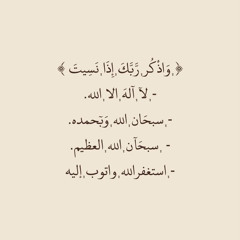 ﴿,وَاذْكُر,رَّبَّكَ,إِذَا,نَسِيتَ ﴾
-,لاَ,آلهَ,الا,الله.
-,سبحَان,الله,وَبَحمده.
-,سبحَآن,الله,العظيم.
-,استغفرالله,واتوب,إليه